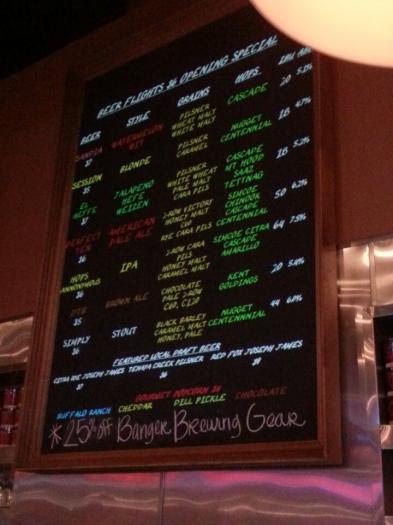 BEER FLIGHTS $6 OPENING SPECIAL
BEER STYLE GRAINS HOPS IBU ABV
SANDIA $7 WATERMELON WIT PILSNER WHEAT MALT WHITE MALT CASCADE 20 5.1%
SESSION $5 BLONDE PILSNER CARAMEL NUGGET CENTENNIAL 18 4.7%
EL HEFFE $5 JALAPENO HEFE WEIZEN PILSNER WHITE WHEAT PALE MALT CARA PILS CASCADE MT HOOD SAAZ TETTNAG 18 5.2%
PERFECT TEN $6 AMERICAN PALE ALE 2-ROW VICTORY HONEY MALT C60 RYE CARA PILS SIMCOE CHINOOK CASCADE CENTENNIAL 50 6.2%
HOPS ANNONYMOUS $6 IPA 2-ROW CARA PILS HONEY MALT CARAMEL MALT SIMCOE CITRA CASCADE AMARILLO 64 7.5%
BROWN ALE CHOCOLATE PALE 2-ROW C60, C120 KENT GOLDINGS 20
SIMPLY $6 STOUT BLACK BARLEY CARAMEL MALT HONEY, PALE NUGGET CENTENNNIAL 44
FEATURED LOCAL DRAFT BEER
CITRA RYE JOSEPH JAMES TENAYA CREEK PILSNER RED FOX JOSEPH JAMES
GOURMET POPCORN
BUFFALO RANCH CHEDDAR DILL PICKLE CHOCOLATE
* 25% off Banger Brewing Gear